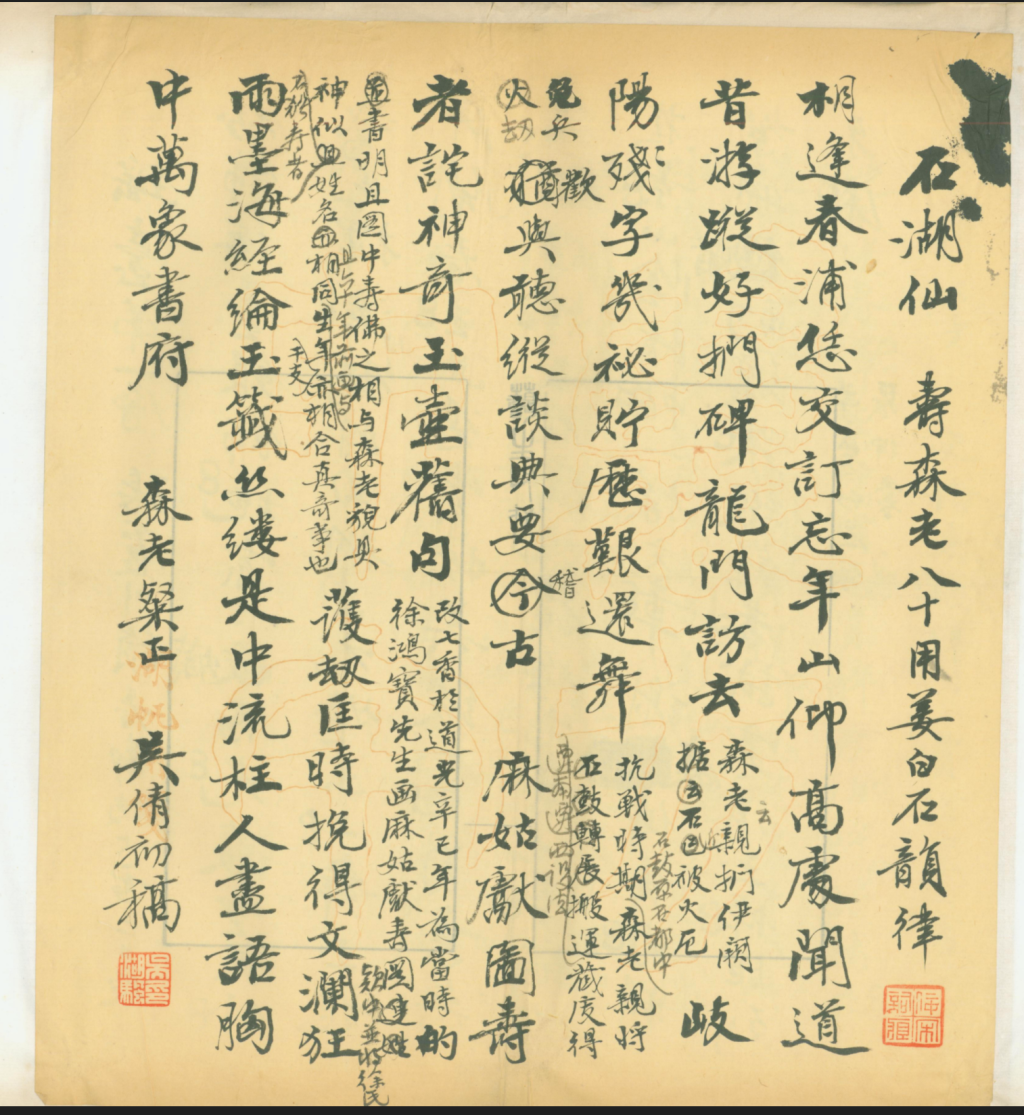 石湖仙　壽森老八十用姜白石韻律
相逢春浦恁交訂忘年山仰高處聞道
昔游蹤好捫碑龍門訪去
森老親捫伊闕
据云石鼓存石都中被火厄
岐
陽殘字幾祕貯歷艱還舞
抗戰時期森老親將
石鼓轉展搬運藏庋得
免兵
火劫猶歡與聽縱談典要今稽古　麻姑獻圖壽
者詫神奇玉壺舊句
改七香於道光辛巳年為當時的
徐鴻寶先生画麻姑獻壽圖
款中並將徐氏
書明且图中壽佛之相与森老貌其
神似與姓名相同生年干支亦相合真奇事也
護劫匡時挽得文瀾狂
雨墨海經綸玉籤丝縷是中流柱人盡語胸
中萬象書府　森老粲正　湖帆　吳倩初稿